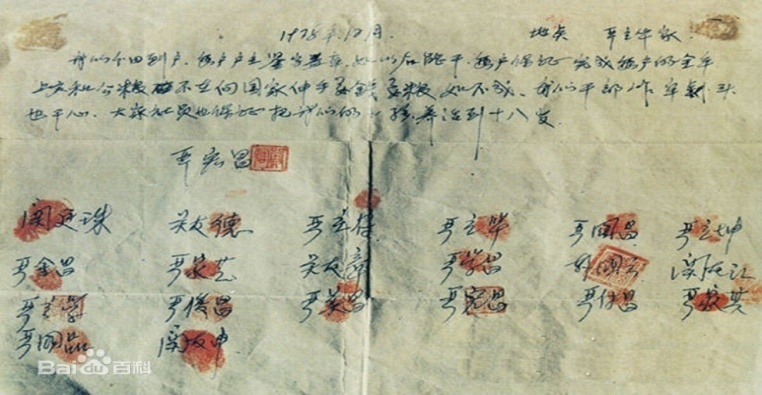 1978年12月 地点 严立华家
我们分田到户，每户户主签字盖章，如以后能干，每户保证完成每户的全年
上交和公粮不在向国家伸手要钱要粮如不成，我们干部作牢刹头
也干心，大家社员也保证把我们的小孩养活到十八岁。
严宏昌
関廷珠 关友德 严立符 严立华 严国昌 严立坤
严金昌 严家芝 关友章 严学昌 韩国云 関友江
严立学 严俊昌 严美昌 严宏昌 严付昌 严家其
严国品 関友申
Bai百科